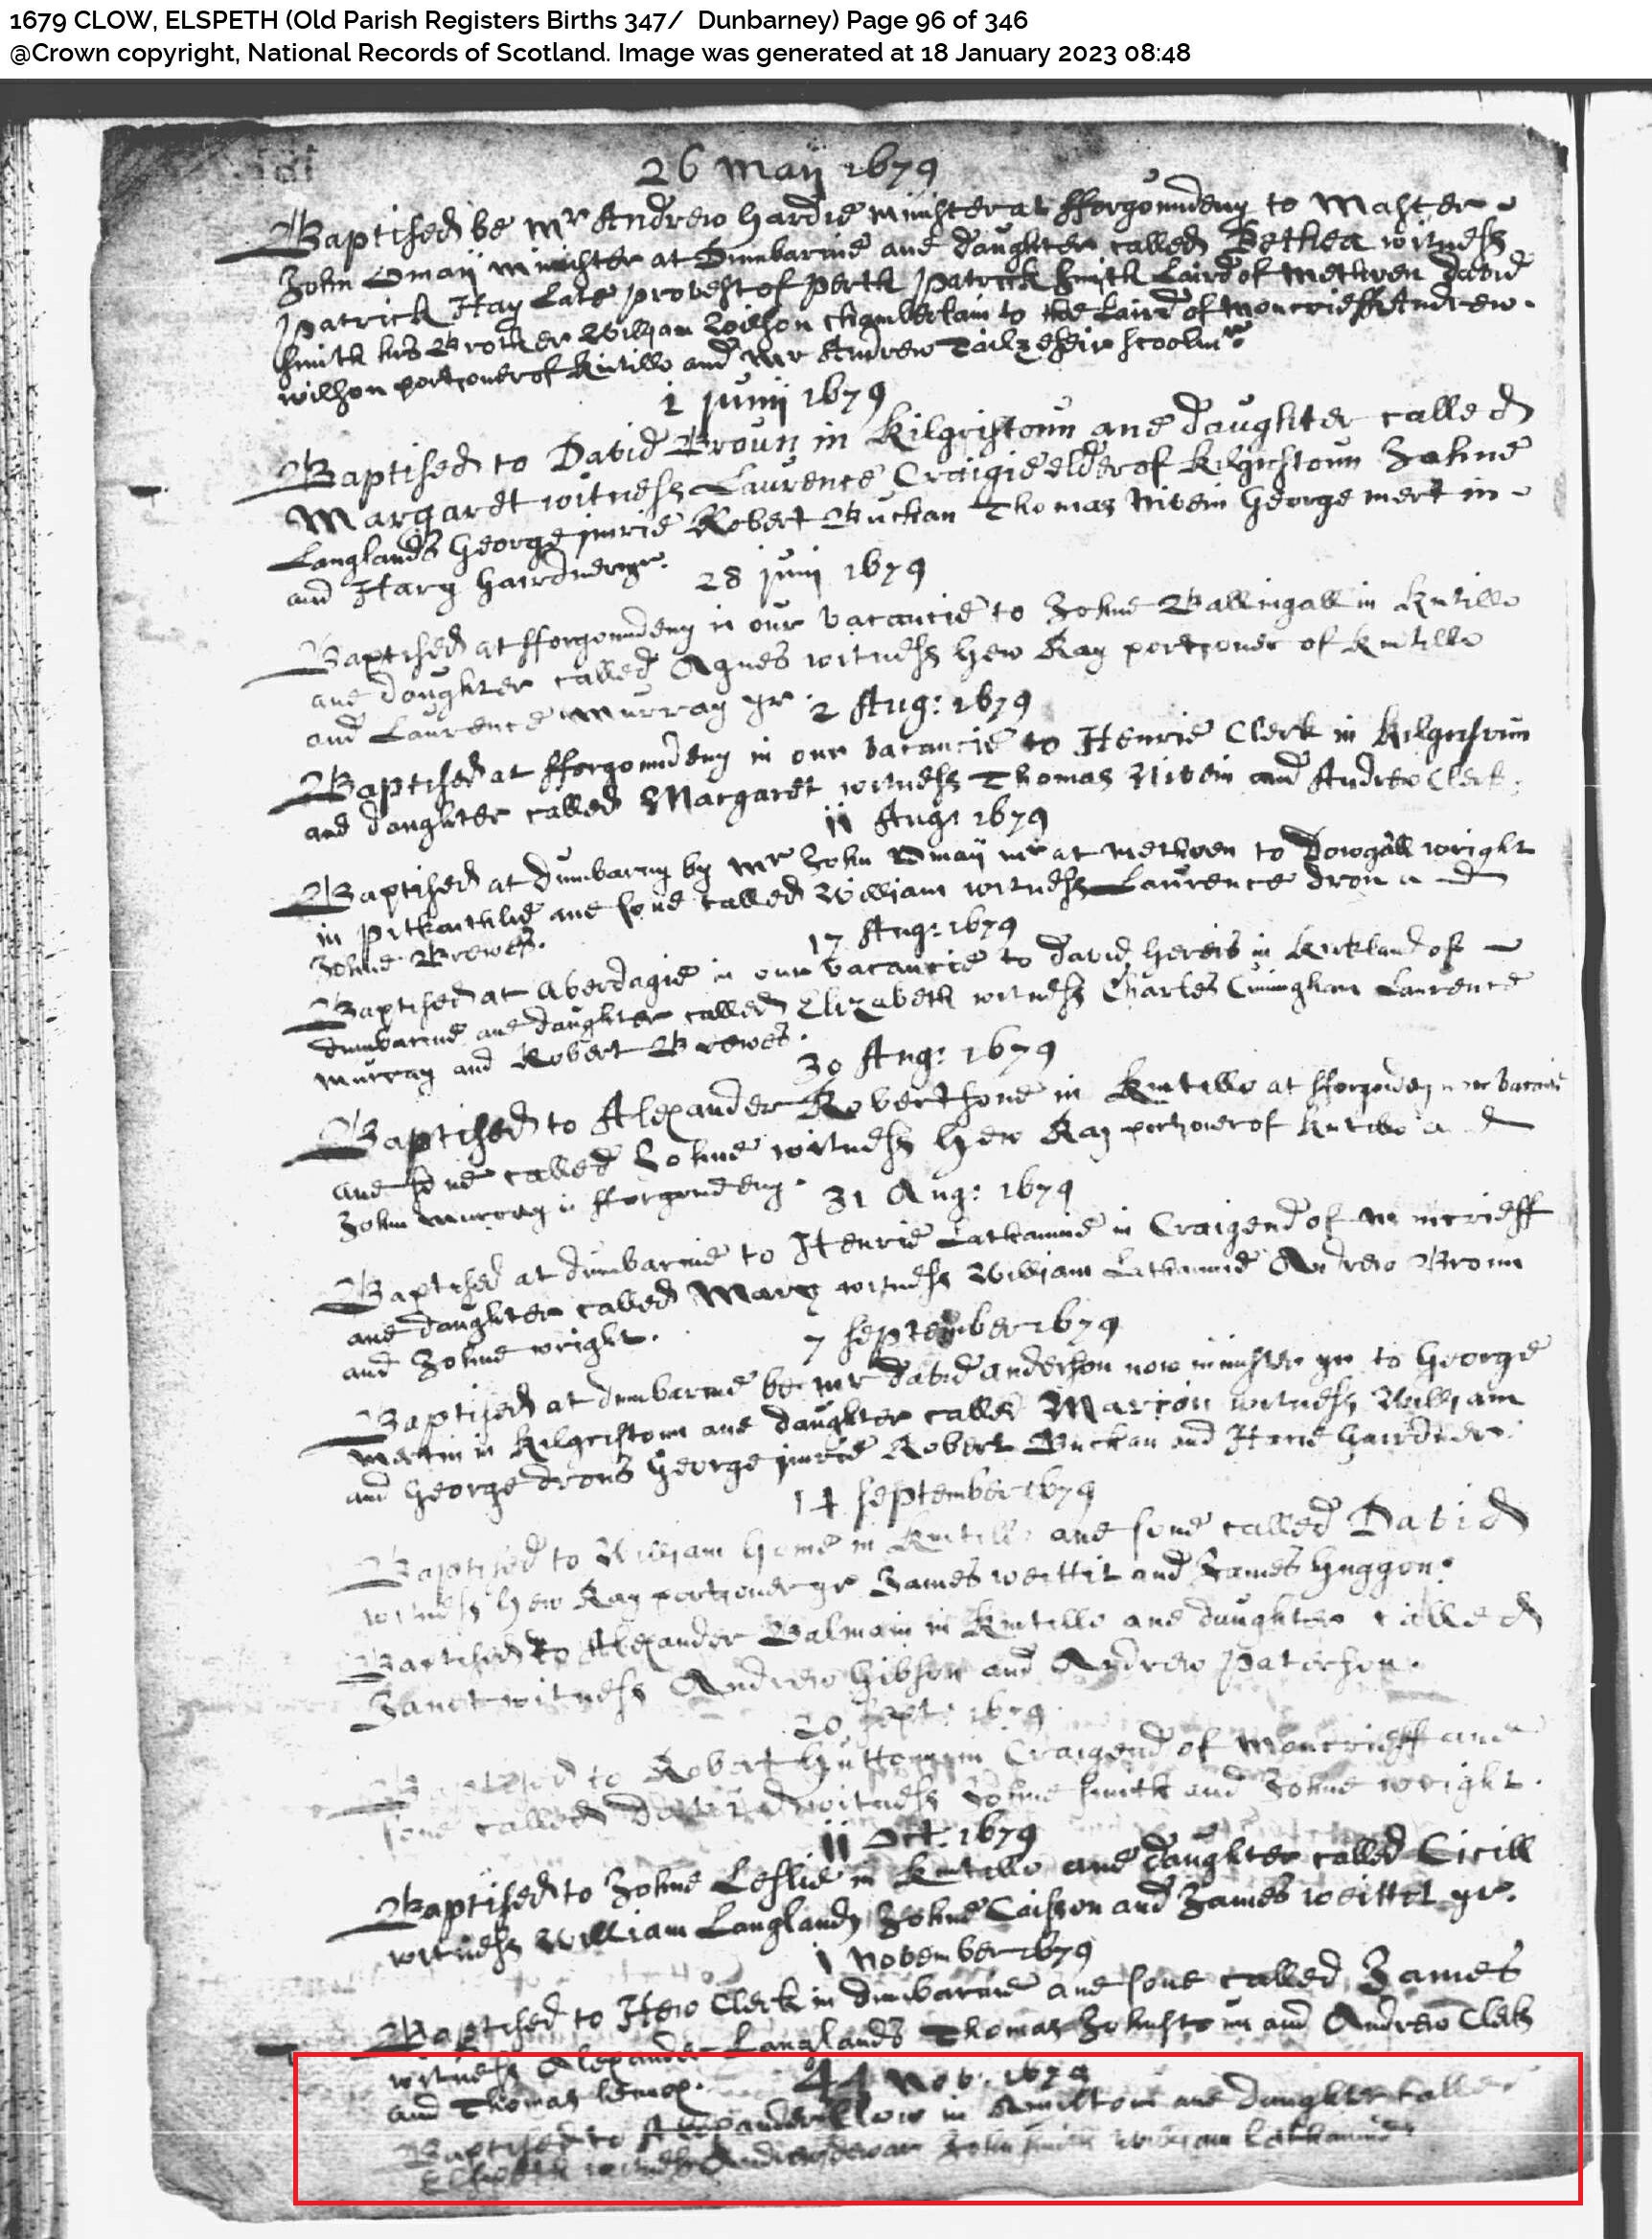 1679 CLOW, ELSPETH (Old Parish Registers Births 347/ Dunbarney) Page 96 of 346
@Crown copyright, National Records of Scotland. Image was generated at 18 January 2023 08:48
26 Maij 1679
Baptised be Mr Andrew Hardie minister at fforgoundeny to Master
John Omaij minister at Dumbarnie ane daughter called Bethea witness
Patrick Hay Late provest of Perth Patrick Smith Laird of Methven David
Smith his Brother William Wilson chamberlain to the Laird of Moncrieff Andrew
Wilson portioner of Kintillo and Mr Andrew Tailzefeir scoolmr
1 Junij 1679
Baptised to David Broun in Kilgristoun ane daughter called
Margaret witness Laurence Craigie elder of Kilgristoun Johne
Langlands George Jmrie Robert Buchan Thomas Nivein George mert in
and Hary Gairdner yr.
28 Junij 1679
Baptised at fforgoundeny in our vacancie to Johne Ballingall in Kintillo
ane daughter called Agnes witness Hew Ray portioner of Kintillo
and Laurence Murray yr. 2 Aug: 1679
Baptised at fforgoundeny in our vacancie to Henrie Clerk in Kilgristoun
ane daughter called Margaret witness Thomas Nivein and Andrew Clerk.
ii Aug: 1679
Baptised at Dumbarny by Mr John Omaij mr at Methven to Dowgall wright
in Pitkaithlie ane sone called William witness Laurence Dron and
Johne Brewes.
17 Aug: 1679
Baptised at Aberdagie in our vacancie to David Hereis in Kirkland of
dumbarnie ane daughter called Elizabeth witness Charles Cuningham Laurence
Murray and Robert Brewes.
30 Aug: 1679
Baptised to Alexander Robertsone in Kintillo at fforgondeny in our vacancie
ane sone called Johne witness Hew Ray portioner of Kintillo and
John Murray in fforgondeny. 31 Aug: 1679
Baptised at dumbarnie to Henrie Lathamne in Craigend of Moncrieff
ane daughter called Mary witness William Lathamne Andrew Broun
and Johne wright.
7 September 1679
Baptised at dumbarnie be Mr David Anderson now minister yr to George
Mertin in Kilgristoun ane daughter called Marion witness William
and George Drons George Jmrie Robert Buchan and Harie Gairdner.
14 September 1679
Baptised to William Home in Kintillo ane sone called David
witness Hew Ray portioner yr James weittit and James Huggon.
Baptised to Alexander Balmain in Kintillo ane daughter called
Janet witness Andrew Gibson and Andrew Paterson.
20 Sept: 1679
Baptised to Robert Huttoun in Craigend of Moncrieff ane
sone called David witness Johne Smith and Johne wright.
ii Oct. 1679
Baptised to Johne Leslie in Kintillo ane daughter called Cicill
witness William Langlands Johne Caisson and James weittit yr.
1 November 1679
Baptised to Hew Clerk in dumbarnie ane sone called James
witness Alexander Langlands Thomas Johnstoun and Andrew Clerk
and Thomas Lennox.
Nov. 1679
Baptised to Alexander Clow in ane daughter called
Elspeth witness Andrew John Smith William Lathamne